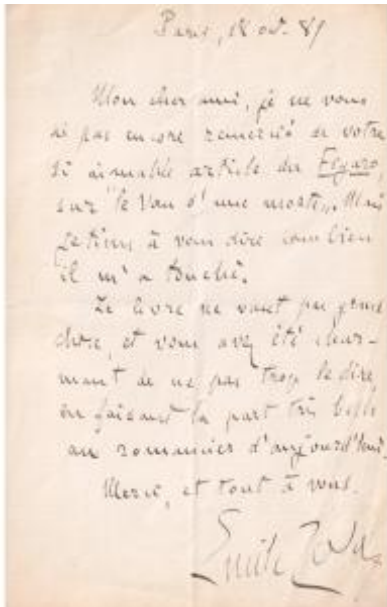 Paris, 18 oct. 89
Mon cher ami, je ne vous
ai pas encore remercié de votre
si aimable article du Figaro,
sur "le Vœu d'une morte". Mais
je tiens à vous dire combien
il m'a touché.
Le livre ne vaut pas grand
chose, et vous avez été char-
mant de ne pas trop le dire,
en faisant la part très belle
au romancier d'aujourd'hui.
Merci, et tout à vous.
Emile Zola